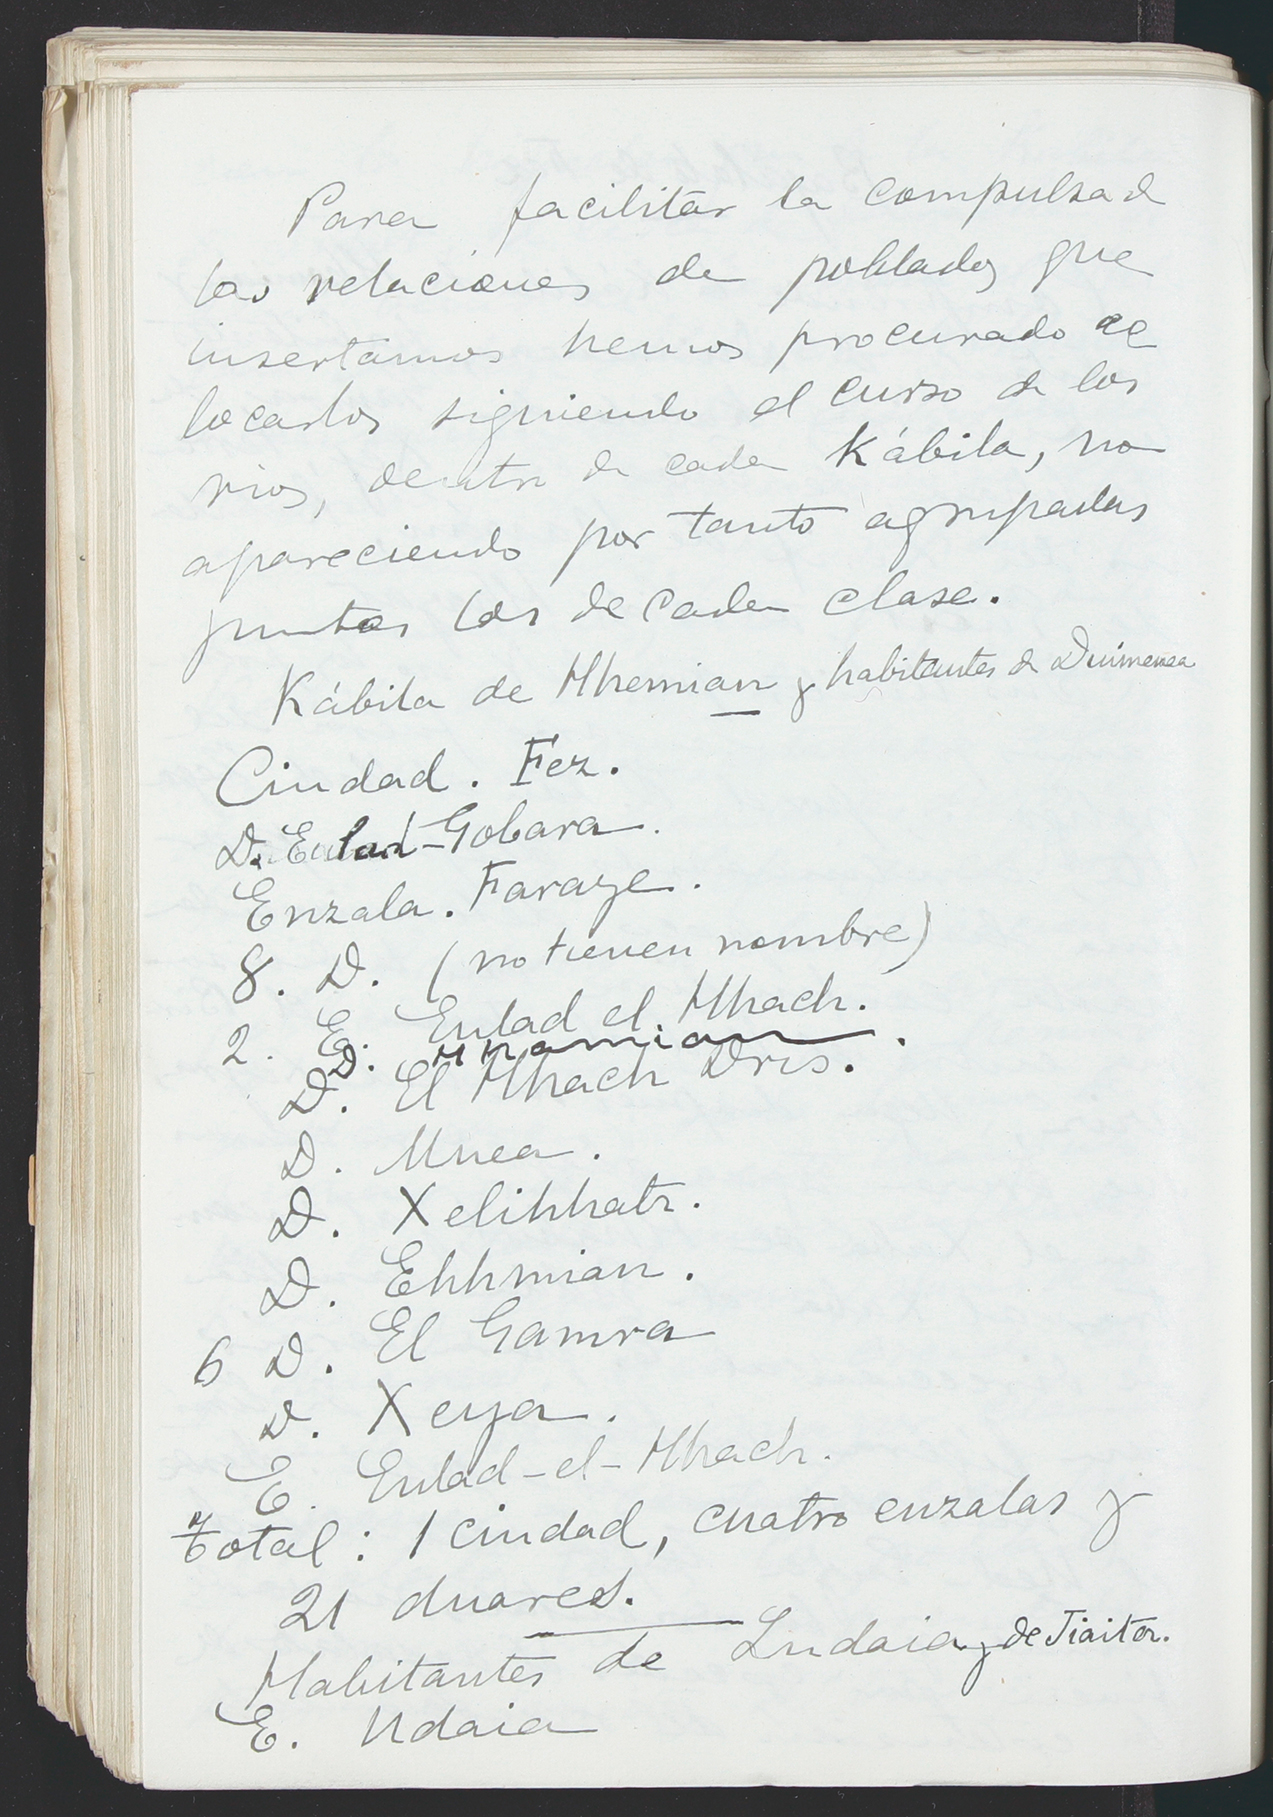 Para facilitar la compulsa d
las relaciones de poblados que
insertamos hemos procurado co
locarlos siguiendo el curso de los
rios, dentro de cada Kábila, no
apareciendo por tanto agrupadas
juntos los de cada clase.
Kábila de Hhemian y habitantes de Duimenea
Ciudad. Fez.
D. Eulad-Gobara.
Enzala. Faraye.
8. D. (no tienen nombre)
2. E. Eulad el Hhach.
D. Hhamian.
D. El Hhach Dris.
D. Mnea.
D. Xelihhatr.
D. Ehhmian.
6 D. El Gamra
D. Xeya.
E. Eulad-el-Hhach.
Total: 1 ciudad, cuatro enzalas y
21 duares.
Habitantes de Ludaia y de Tiaitor.
E. Udaia